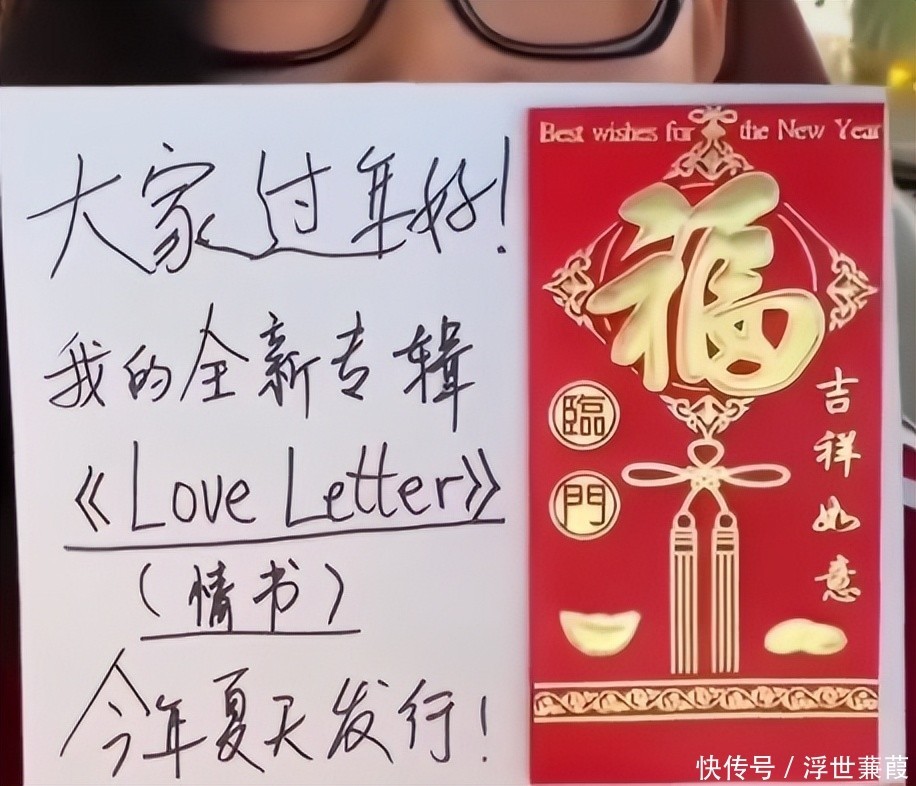 大家过年好！
我的全新专辑
《Love Letter》
（情书）
今年夏天发行！
Best wishes for the New Year
福
臨
門
吉祥如意
快传号 / 浮世蒹葭